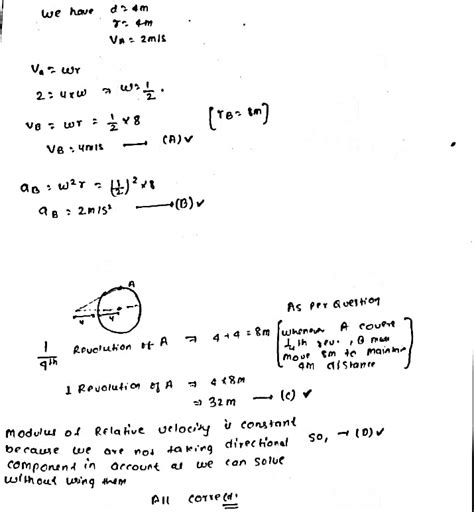 we have d = 4m
r = 4m
VA = 2m/s
VA = ωr
2 = 4×ω ⇒ ω = 1/2.
VB = ωr = 1/2 × 8 [rB = 8m]
VB = 4m/s → (A) ✓
aB = ω²r = (1/2)² × 8
aB = 2m/s² → (B) ✓
A
4 4
As per Question
1/4th Revolution of A ⇒ 4+4 = 8m [whenever A covers
1/4th rev., B must
move 8m to maintain
4m distance]
1 Revolution of A ⇒ 4×8m
⇒ 32m → (C) ✓
Modulus of Relative velocity is constant
because we are not taking directional so, → (D) ✓
component in account as we can solve
without using them
All correct.